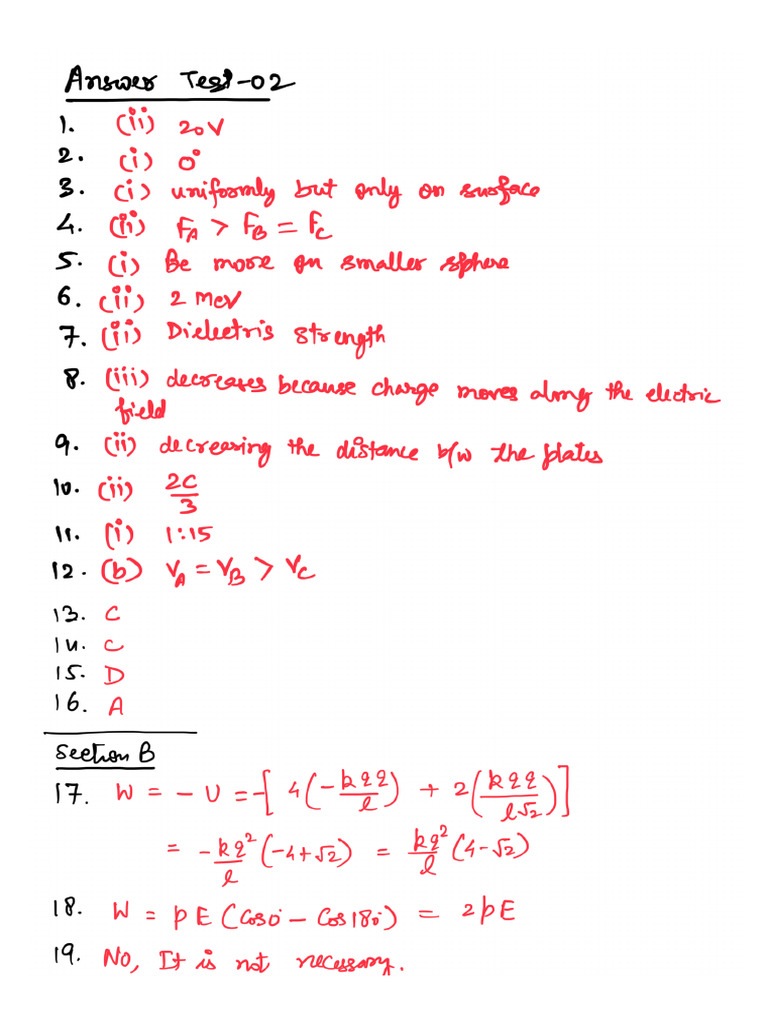 Answer Test-02
1. (ii) 20V
2. (i) 0°
3. (i) uniformly but only on surface
4. (ii) F_A > F_B = F_C
5. (i) Be more on smaller sphere
6. (ii) 2 MeV
7. (ii) Dielectris strength
8. (iii) decreases because charge moves along the electric
field
9. (ii) decreasing the distance b/w the plates
10. (ii) 2C/3
11. (i) 1:15
12. (b) V_A = V_B > V_C
13. C
14. C
15. D
16. A
Section B
17. W = - U = -[ 4(-kqq/l) + 2(kqq/l√2)]
= -kq²/l (-4+√2) = kq²/l (4-√2)
18. W = pE (Cos0 - Cos180) = 2pE
19. No, It is not necessary.